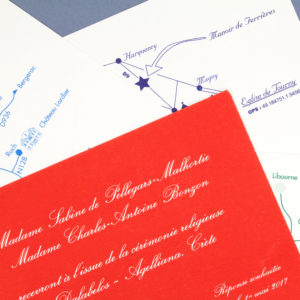 Harquency
Manoir de Ferrières
D5
Mupy
Eglise de Tourny
GPS :
Bergerac
D936
Château Lardier
Ruch
N128
Libourne
Madame Sabine de Pellegars-Malhortie
Madame Charles-Antoine Bonzon
recevront à l'issue de la cérémonie religieuse
- Agelliana, Crète
Réponse souhaitée
mai 2017